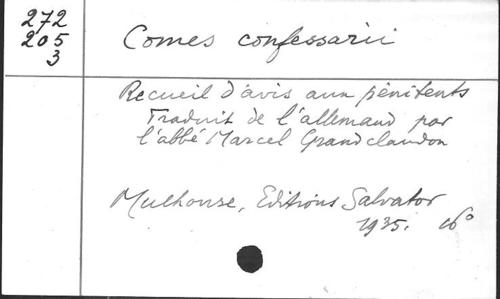 272
205
3
Comes confessarii
Recueil d'avis aux pénitents
Traduit de l'allemand par
l'abbé Marcel Grandclaudon
Mulhouse, Editions Salvator
1935. 16°